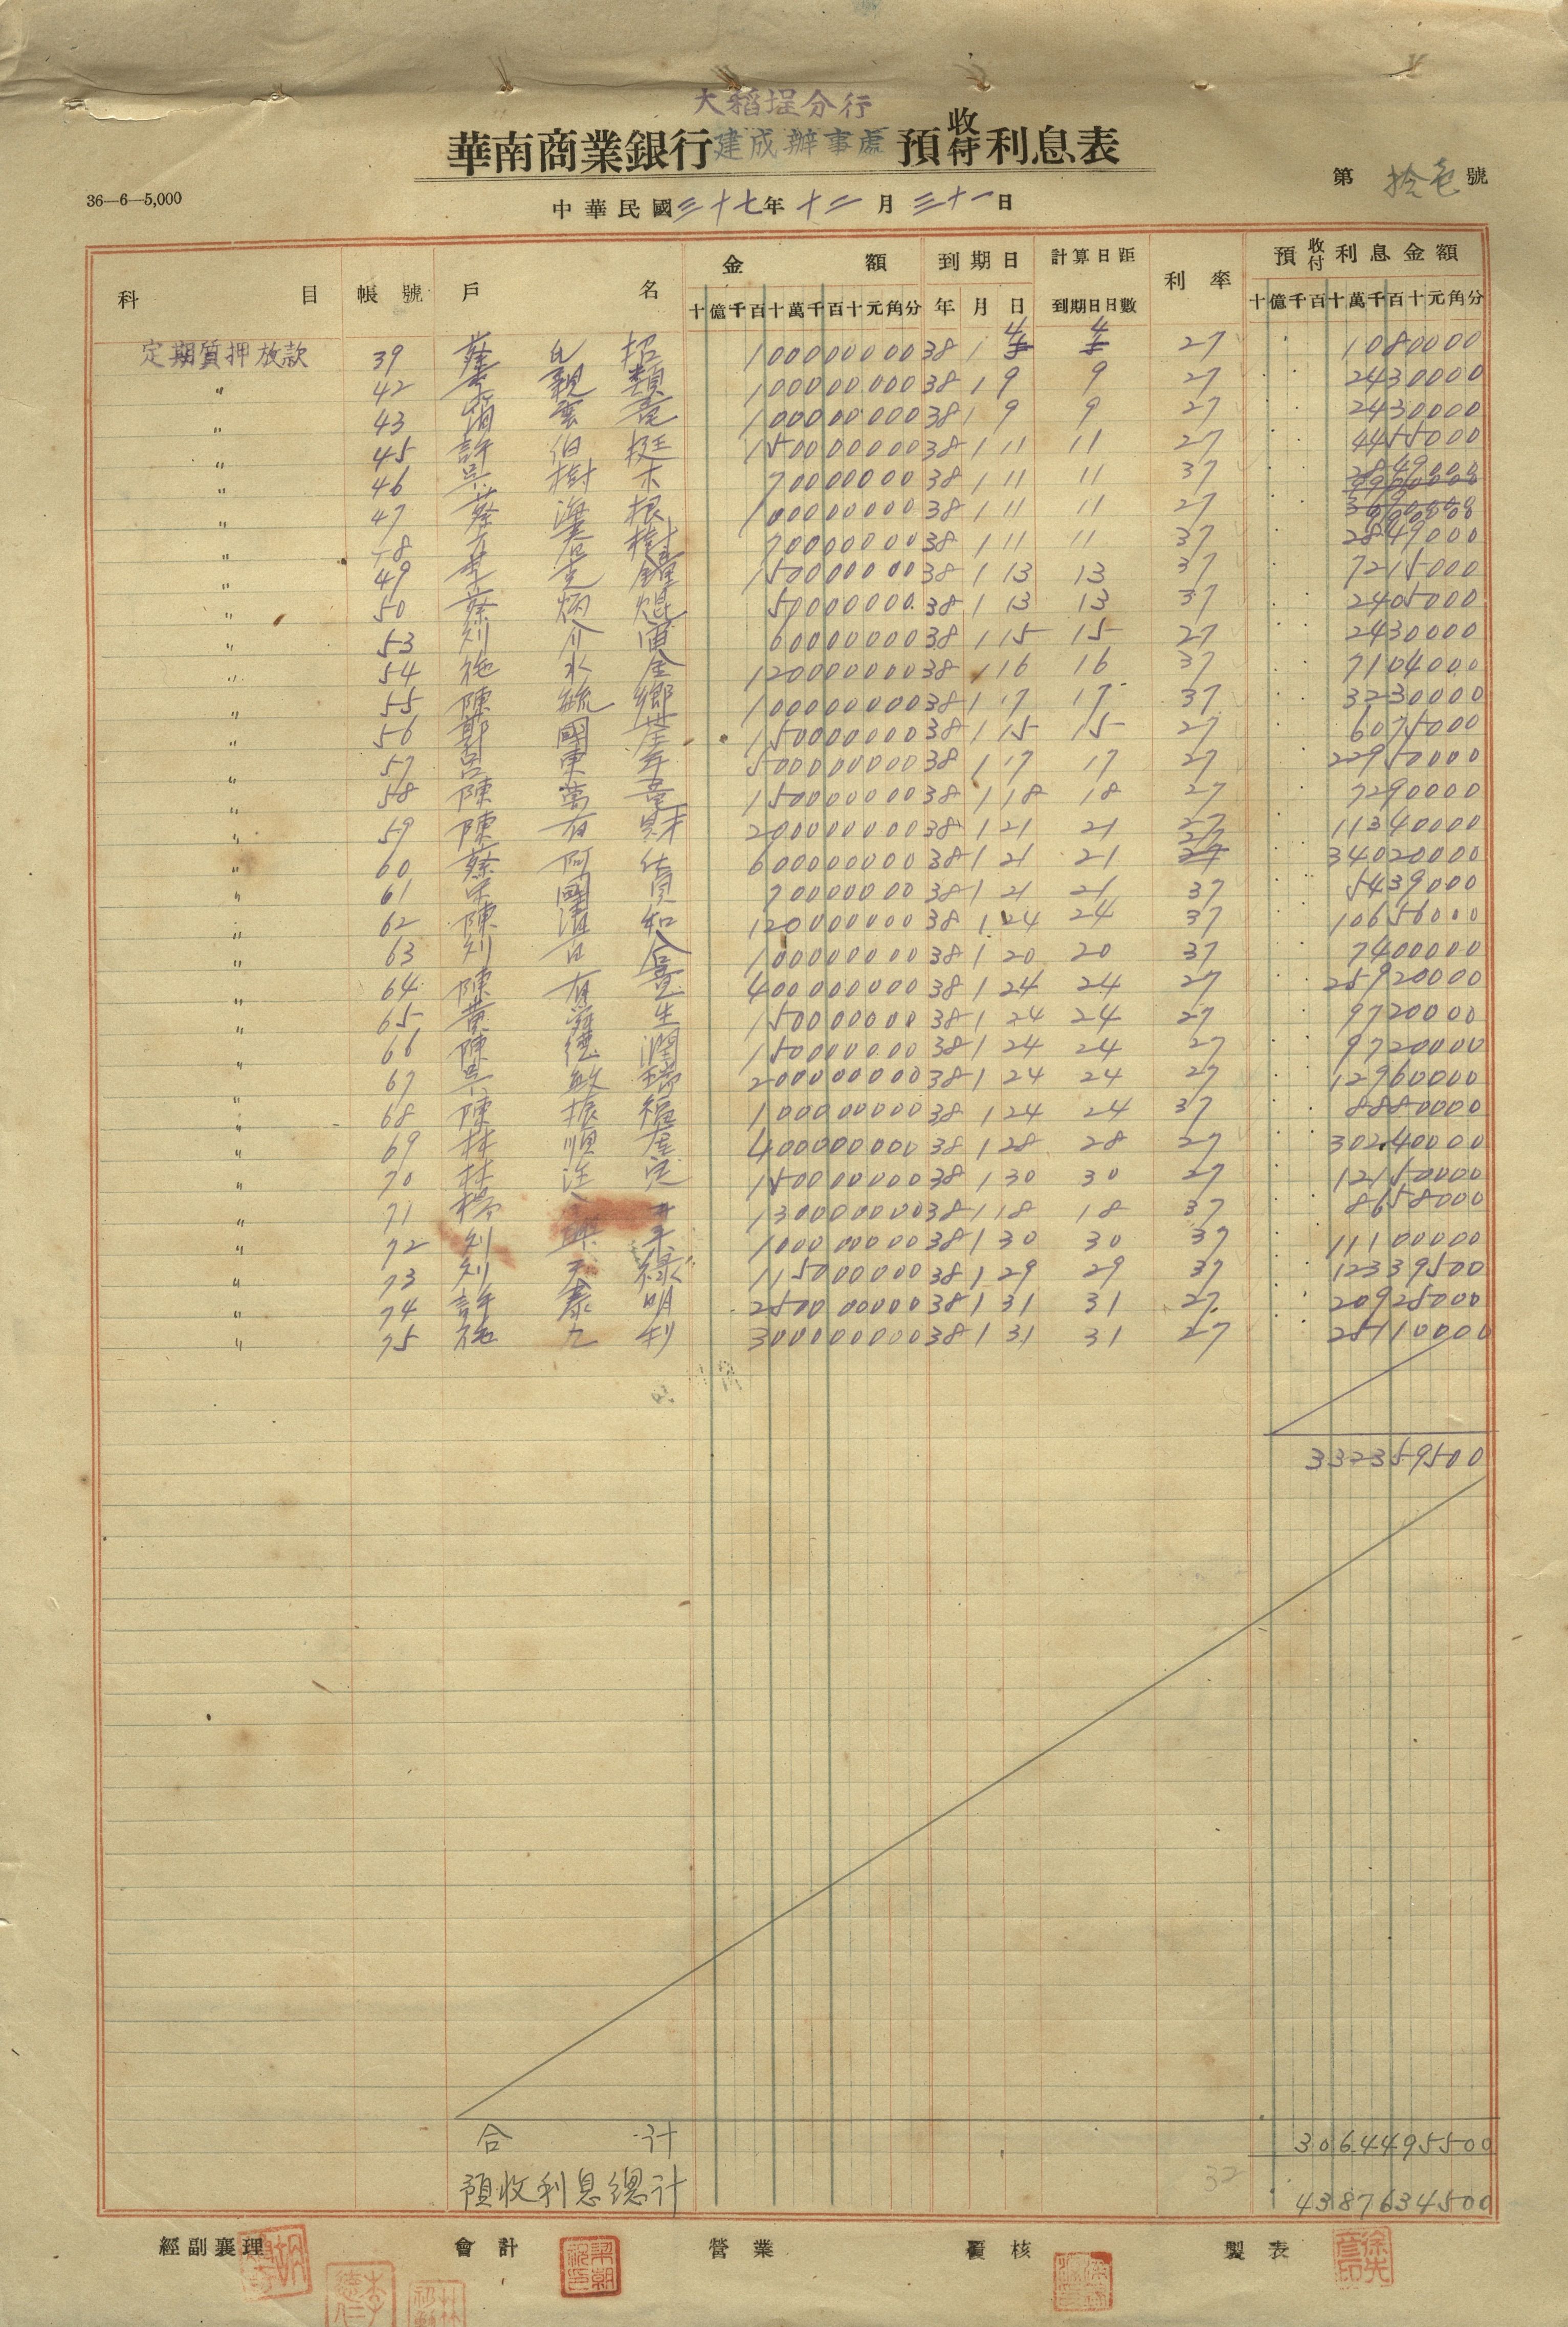 大稻埕分行
華南商業銀行建成辦事處預收付利息表
第拾壱號
36—6—5,000
中華民國三十七年十二月三十一日
科目 帳號 戶名 金額 到期日 計算日距到期日日數 利率 預收付利息金額
十億千百十萬千百十元角分 年月日 十億千百十萬千百十元角分
定期質押放款 39 蔡 招 100000000 38 1 4 4 27 1080000
〃 42 親 類 100000000 38 1 9 9 27 2430000
〃 43 100000000 38 1 9 9 27 2430000
〃 45 許伯挺 150000000 38 1 11 11 27 4455000
〃 46 吳樹木 70000000 38 1 11 11 37 2849000
〃 47 蔡 根 100000000 38 1 11 11 27
〃 48 樹 70000000 38 1 11 11 37 2849000
〃 49 150000000 38 1 13 13 37 7215000
〃 50 蔡炳焜 50000000 38 1 13 13 37 2405000
〃 53 刘 60000000 38 1 15 15 27 2430000
〃 54 施水金 120000000 38 1 16 16 37 7104000
〃 55 陳 鄉 100000000 38 1 17 17 37 3230000
〃 56 鄭國 150000000 38 1 15 15 27 6075000
〃 57 呂東 500000000 38 1 17 17 27 22950000
〃 58 陳萬 150000000 38 1 18 18 27 7290000
〃 59 陳有財 200000000 38 1 21 21 27 11340000
〃 60 蔡阿 600000000 38 1 21 21 27 34020000
〃 61 國 70000000 38 1 21 21 37 5439000
〃 62 陳清和 120000000 38 1 24 24 37 10656000
〃 63 刘 100000000 38 1 20 20 37 7400000
〃 64 陳 400000000 38 1 24 24 27 25920000
〃 65 黃 生 150000000 38 1 24 24 27 9720000
〃 66 陳德潤 150000000 38 1 24 24 27 9720000
〃 67 吳敏 200000000 38 1 24 24 27 12960000
〃 68 陳振福 100000000 38 1 24 24 37 8880000
〃 69 林順 400000000 38 1 28 28 27 30240000
〃 70 林 150000000 38 1 30 30 27 12150000
〃 71 楊 130000000 38 1 18 18 37 8658000
〃 72 刘 100000000 38 1 30 30 37 11100000
〃 73 刘天祿 115000000 38 1 29 29 37 12339500
〃 74 許泰明 250000000 38 1 31 31 27 20925000
〃 75 施九利 300000000 38 1 31 31 27 25110000
332359500
合計 3064495500
預收利息總計 4387634500
經副襄理 會計 營業 覆核 製表